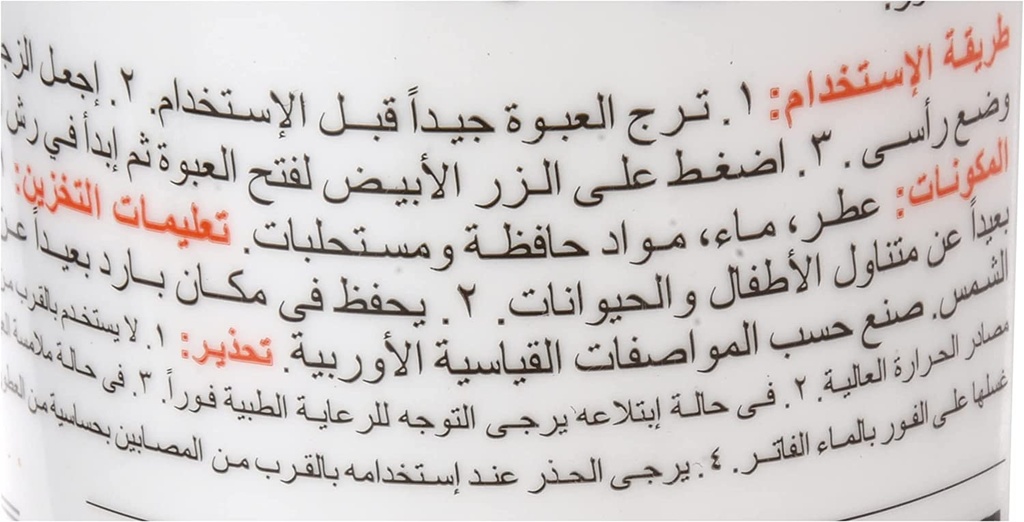 طريقة الإستخدام: ١. ترج العبوة جيداً قبل الإستخدام. ٢. إجعل
وضع رأسى. ٣. اضغط على الزر الأبيض لفتح العبوة ثم إبدأ في رش
المكونات: عطر، ماء، مواد حافظة ومستحلبات. تعليمات التخزين:
بعيداً عن متناول الأطفال والحيوانات. ٢. يحفظ فى مكان بارد بعيداً عن
الشمس. صنع حسب المواصفات القياسية الأوربية. تحذير: ١. لا يستخدم بالقرب من
مصادر الحرارة العالية. ٢. فى حالة إبتلاعه يرجى التوجه للرعاية الطبية فوراً. ٣. فى حالة ملامسة
غسلها على الفور بالماء الفاتر. ٤. يرجى الحذر عند إستخدامه بالقرب من المصابين بحساسية من